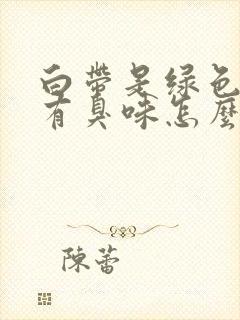 白带是绿色
有臭味怎麽
陳蕾